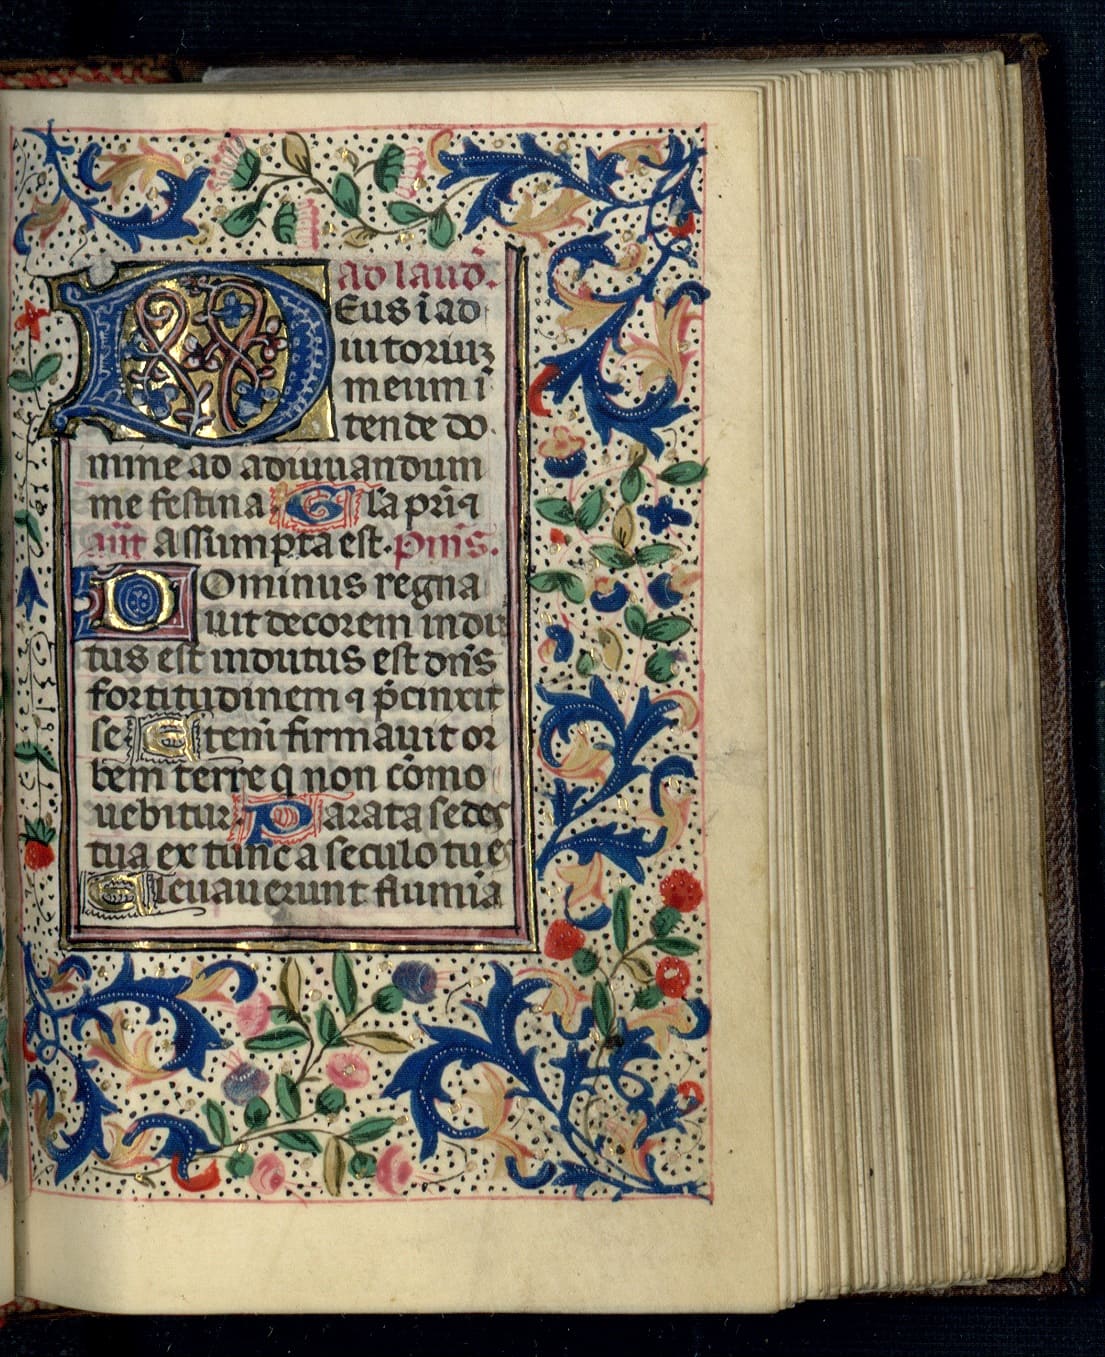 ad laud̄.
DEus ī ad
iutoriuꝫ
meum ī
tende do
mine ad adiuuandum
me festina Gl̄a pr̄i ⁊
an̄t Assumpta est. p̄mīs.
DOminus regna
uit decorem indu
tus est indutus est dn̄s
fortitudinem ⁊ p̄cinxit
se Eteni firmauit or
bem terre q non cōmo
uebitur Parata sedes
tua ex tunc a seculo tu es
Eleuauerunt flumia